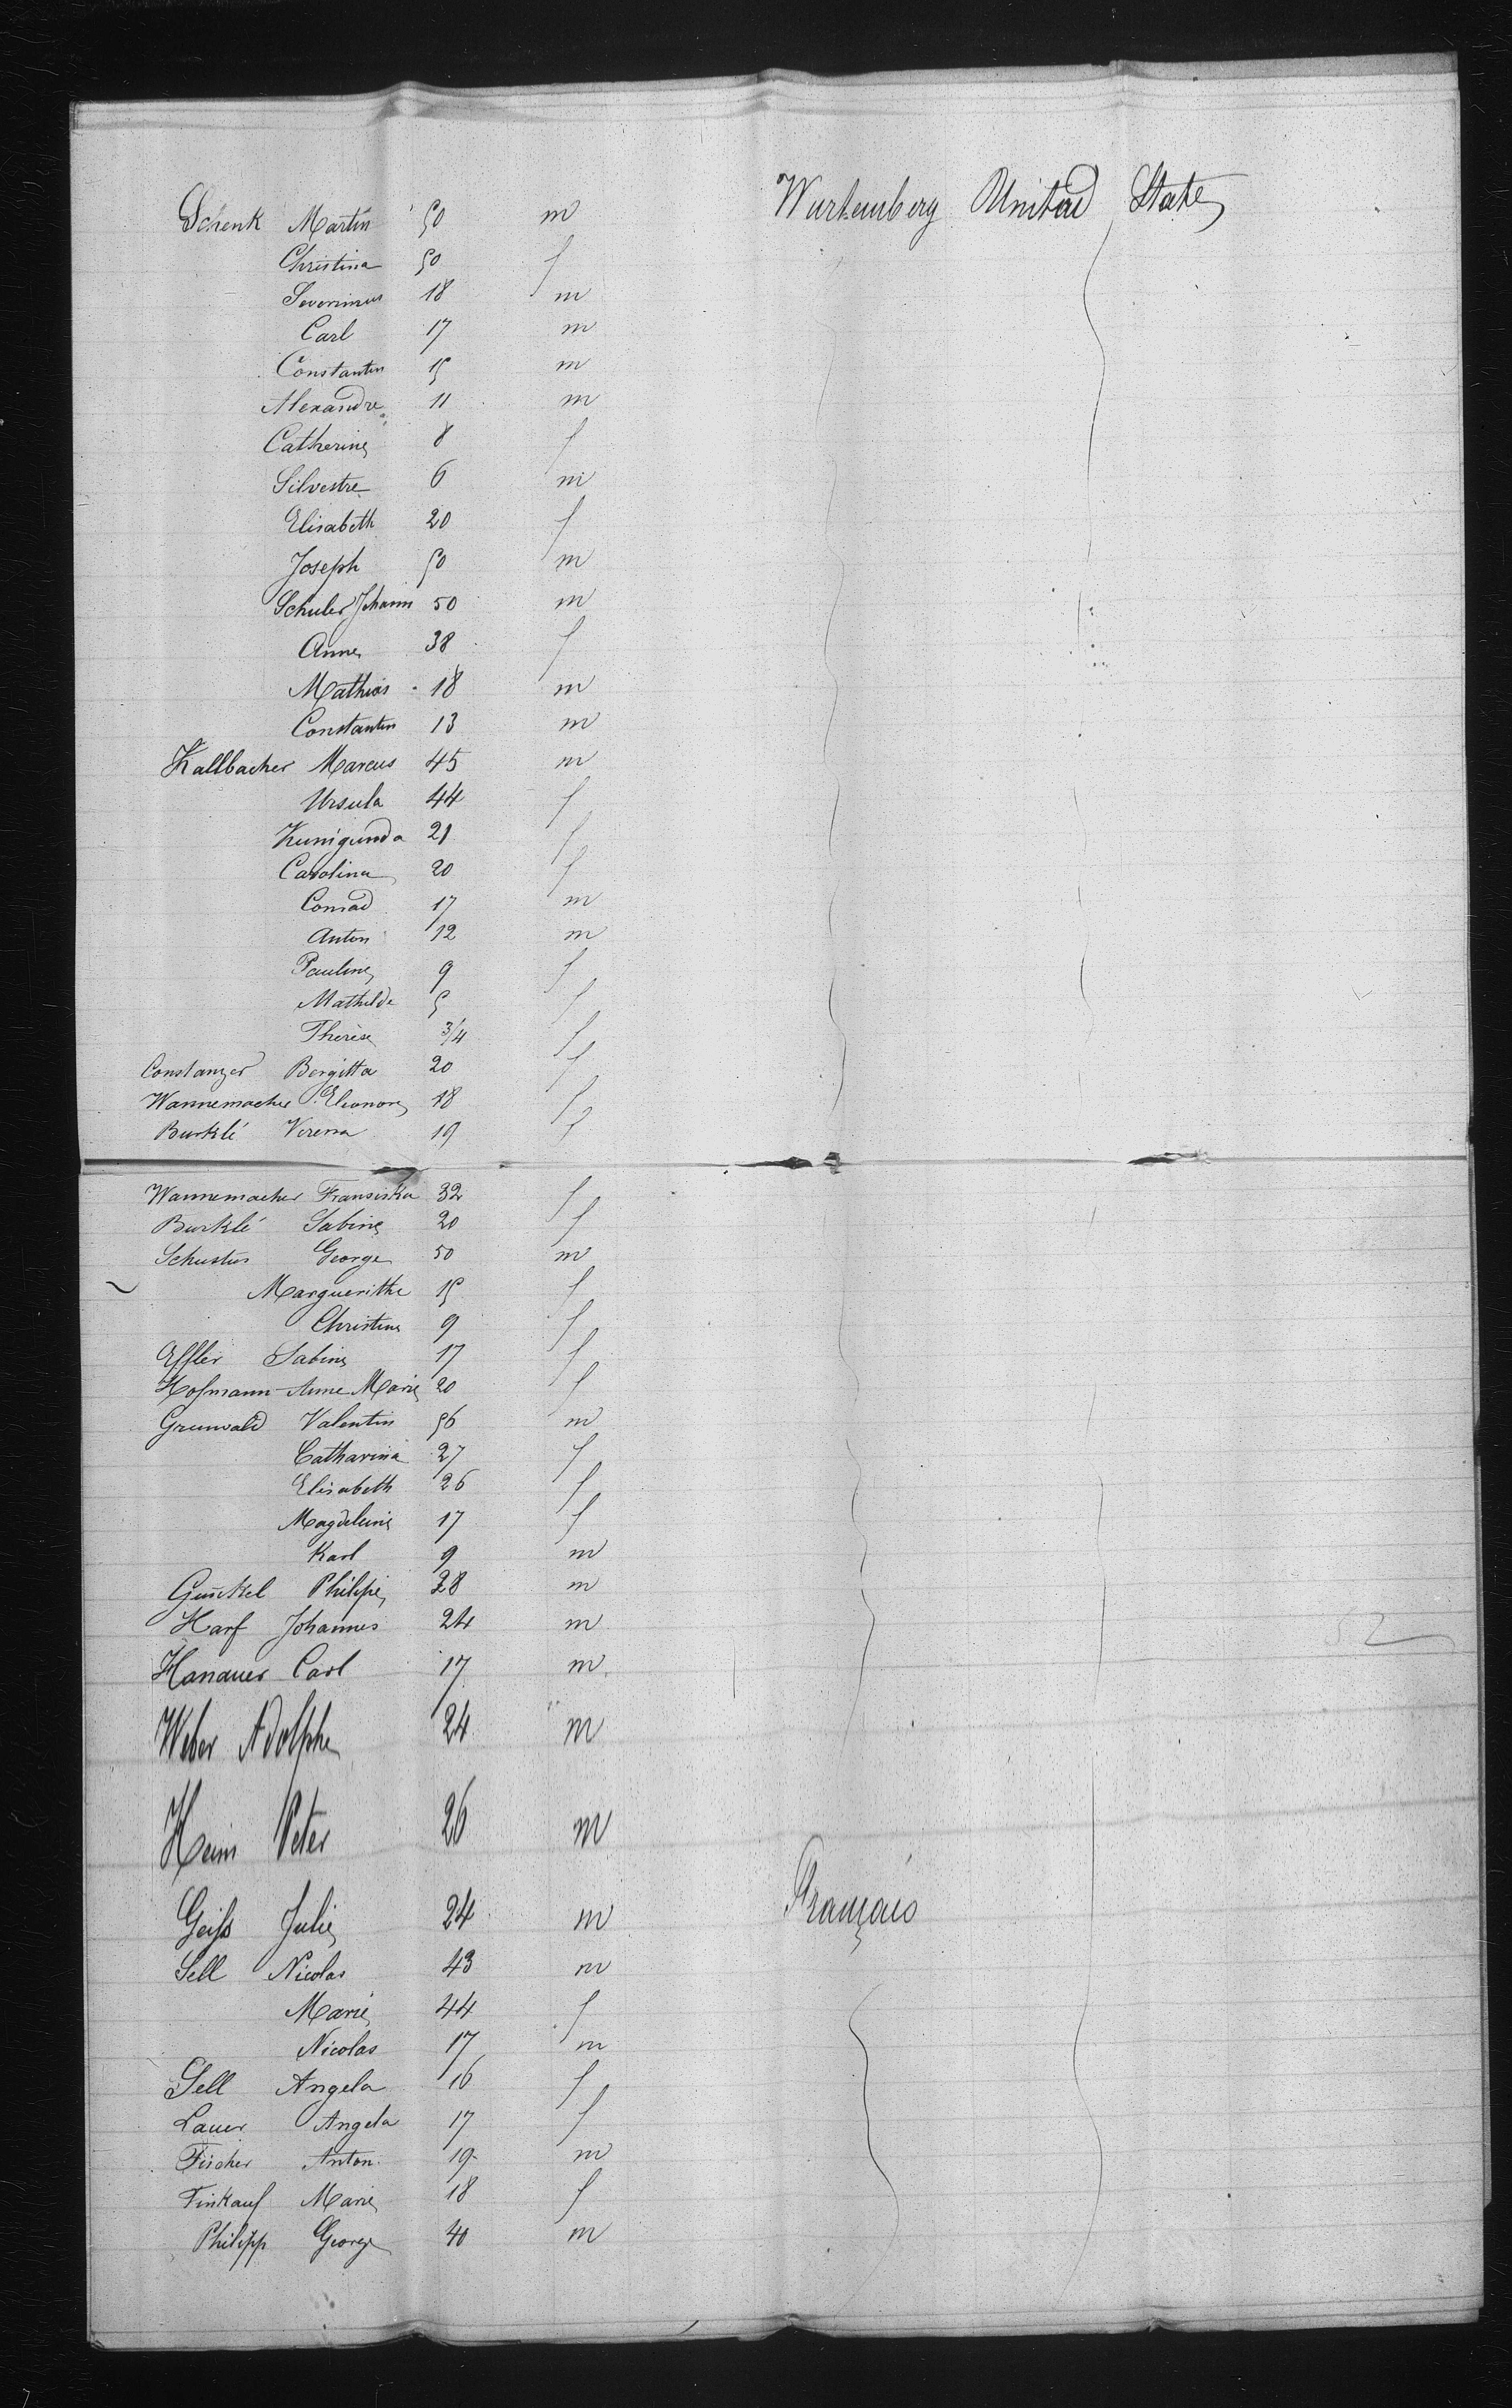 Schenk Martin 50 m Wurtemberg United States
Christina 50 f
Severinus 18 m
Carl 17 m
Constantin 15 m
Alexandre 11 m
Catherine 8 f
Silvestre 6 m
Elisabeth 20 f
Joseph 50 m
Schuler Johann 50 m
Anne 38 f
Mathias 18 m
Constantin 13 m
Kallbacher Marcus 45 m
Ursula 44 f
Kunigunda 21 f
Carolina 20 f
Conrad 17 m
Anton 12 m
Pauline 9 f
Mathilde 5 f
Therèse 3/4 f
Constanzer Bergitta 20 f
Wannemacher Eleonore 18 f
Burklé Verena 19 f
Wannemacher Fransiska 32 f
Burklé Sabine 20 f
Schustus George 50 m
Marguerithe 15 f
Christine 9 f
Effler Sabine 17 f
Hofmann Anne Marie 20 f
Grunvald Valentin 56 m
Catharina 27 f
Elisabeth 26 f
Magdeleine 17 f
Karl 9 m
Gunckel Philippe 28 m
Harf Johannes 24 m
52
Hanauer Carl 17 m
Weber Adolphe 24 m
Heim Peter 26 m
Geiss Julie 24 m Français
Sell Nicolas 43 m
Marie 44 f
Nicolas 17 m
Sell Angela 16 f
Lauer Angela 17 f
Fischer Anton 19 m
Finkauf Marie 18 f
Philipp George 40 m